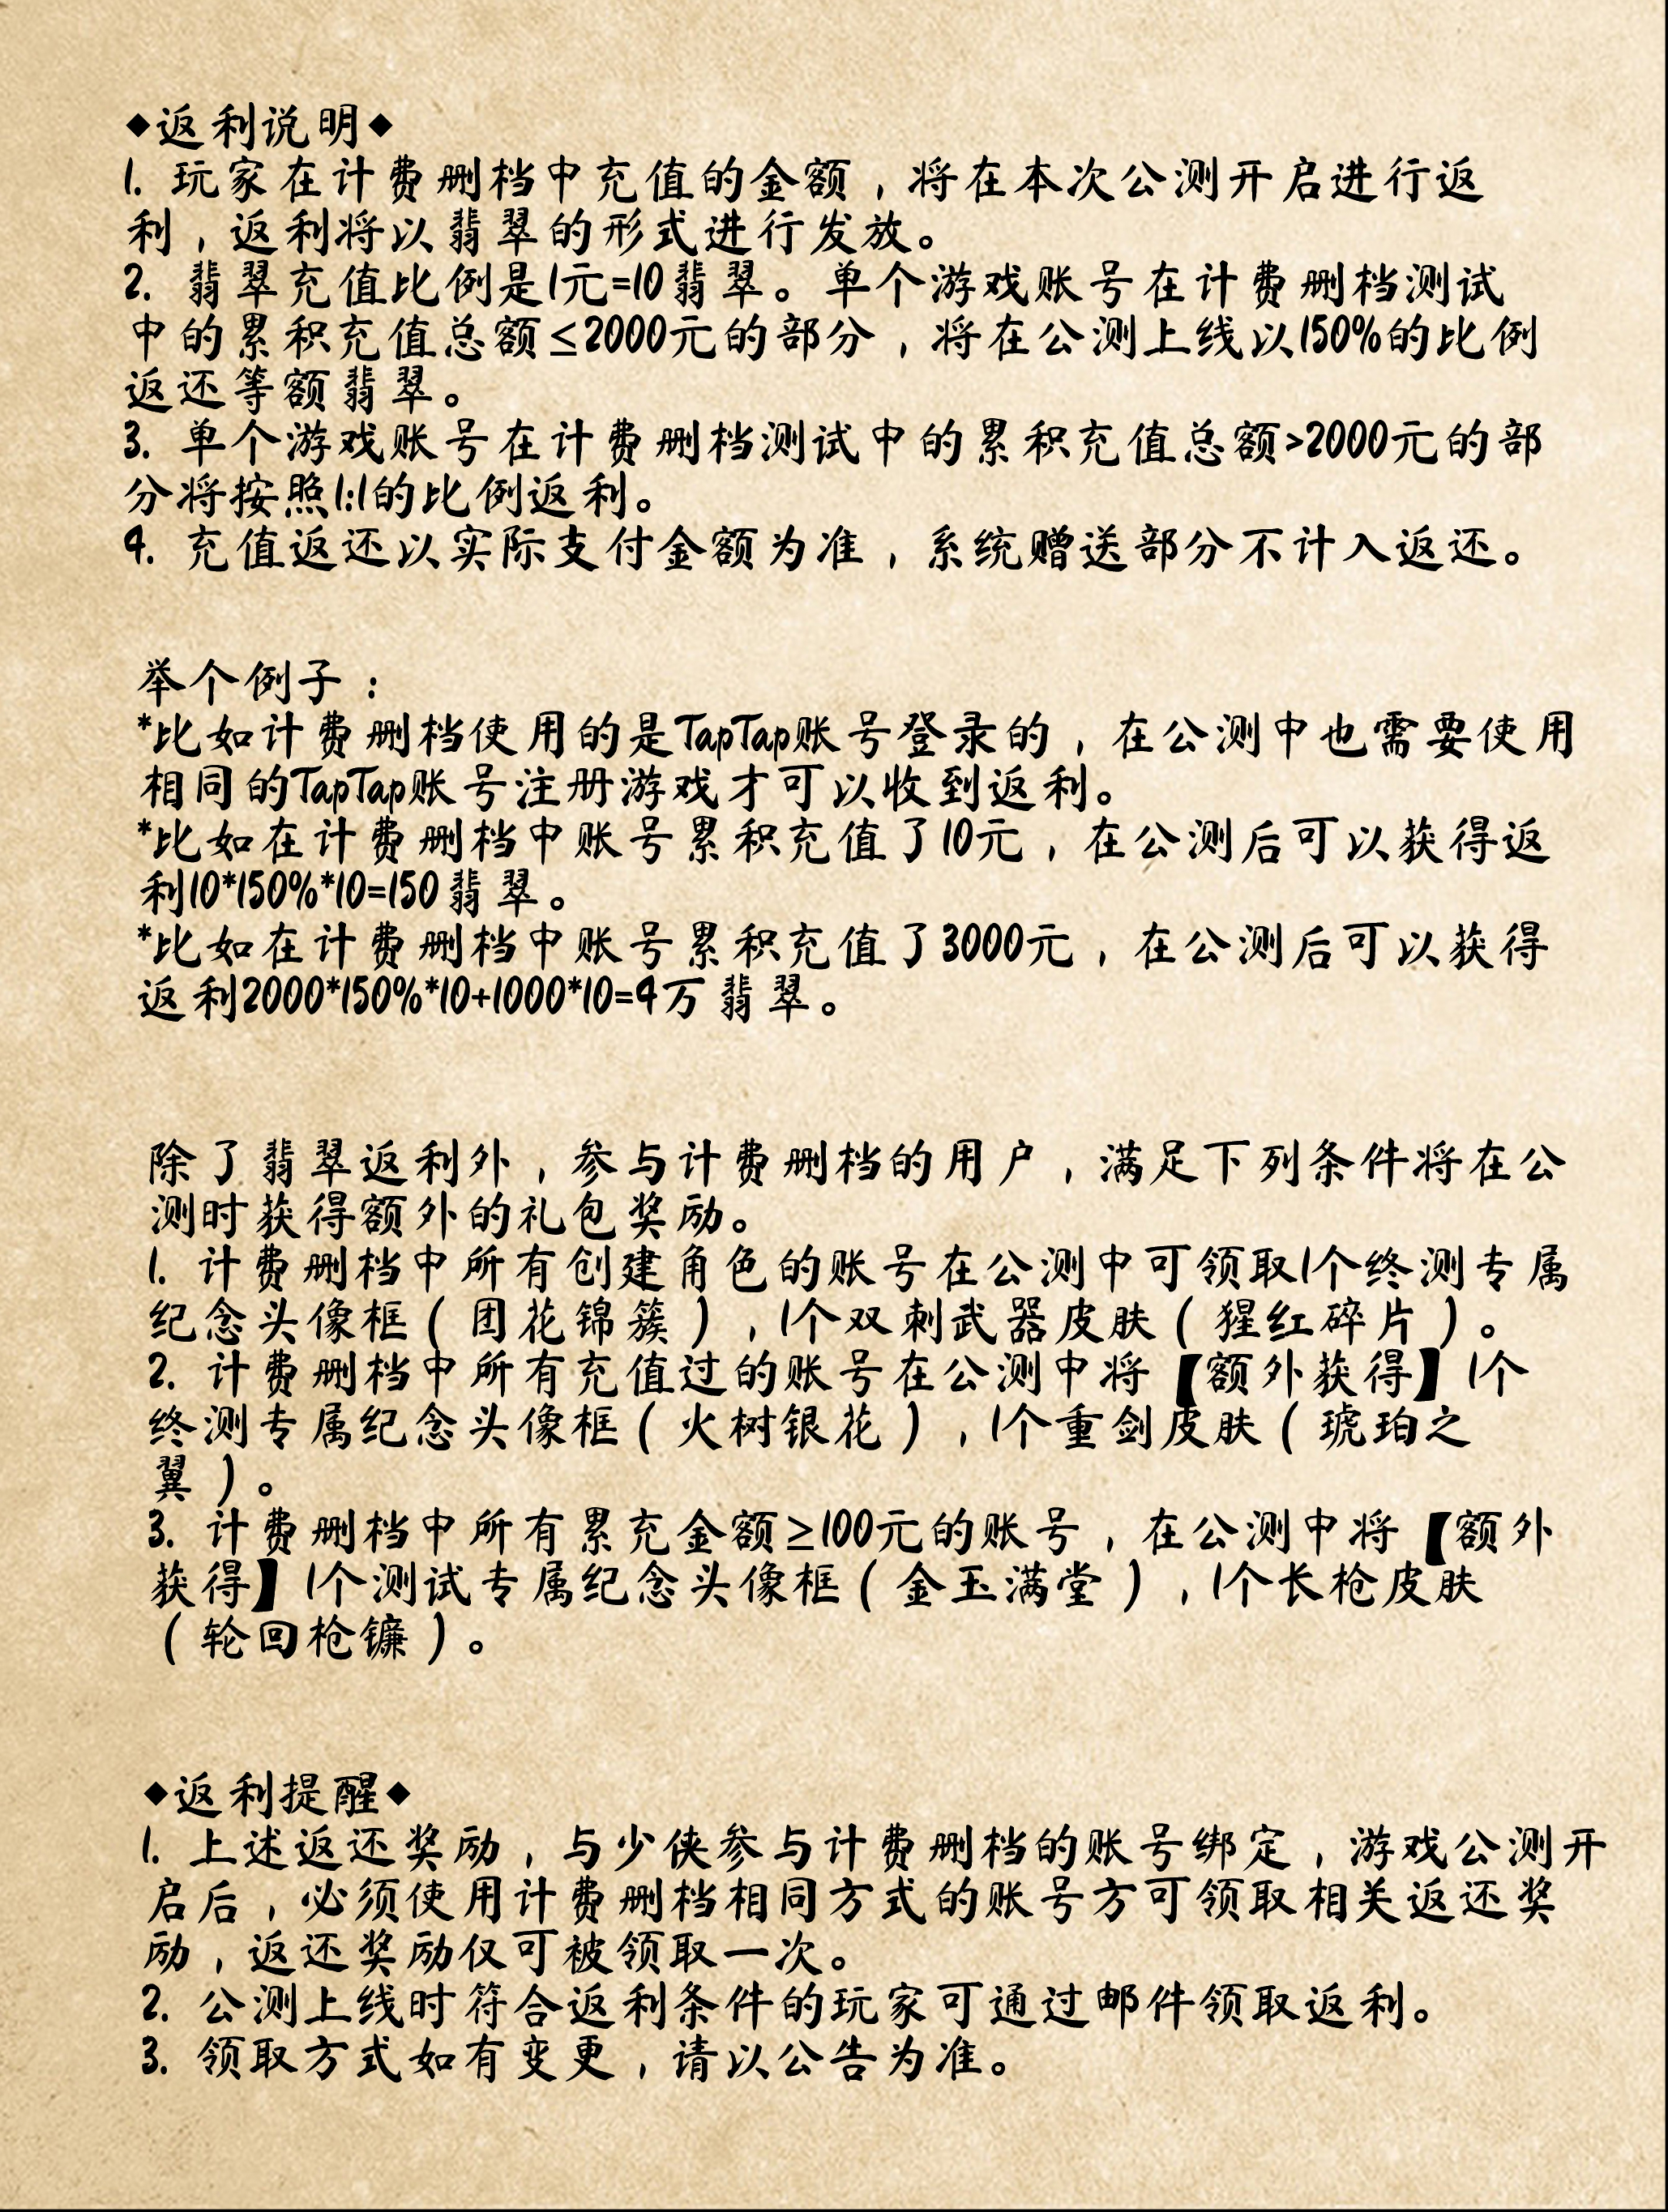 ◆返利说明◆
1. 玩家在计费删档中充值的金额，将在本次公测开启进行返
利，返利将以翡翠的形式进行发放。
2. 翡翠充值比例是1元=10翡翠。单个游戏账号在计费删档测试
中的累积充值总额≤2000元的部分，将在公测上线以150%的比例
返还等额翡翠。
3. 单个游戏账号在计费删档测试中的累积充值总额>2000元的部
分将按照1:1的比例返利。
4. 充值返还以实际支付金额为准，系统赠送部分不计入返还。
举个例子：
*比如计费删档使用的是TapTap账号登录的，在公测中也需要使用
相同的TapTap账号注册游戏才可以收到返利。
*比如在计费删档中账号累积充值了10元，在公测后可以获得返
利10*150%*10=150翡翠。
*比如在计费删档中账号累积充值了3000元，在公测后可以获得
返利2000*150%*10+1000*10=4万翡翠。
除了翡翠返利外，参与计费删档的用户，满足下列条件将在公
测时获得额外的礼包奖励。
1. 计费删档中所有创建角色的账号在公测中可领取1个终测专属
纪念头像框（团花锦簇），1个双刺武器皮肤（猩红碎片）。
2. 计费删档中所有充值过的账号在公测中将【额外获得】1个
终测专属纪念头像框（火树银花），1个重剑皮肤（琥珀之
翼）。
3. 计费删档中所有累充金额≥100元的账号，在公测中将【额外
获得】1个测试专属纪念头像框（金玉满堂），1个长枪皮肤
（轮回枪镰）。
◆返利提醒◆
1. 上述返还奖励，与少侠参与计费删档的账号绑定，游戏公测开
启后，必须使用计费删档相同方式的账号方可领取相关返还奖
励，返还奖励仅可被领取一次。
2. 公测上线时符合返利条件的玩家可通过邮件领取返利。
3. 领取方式如有变更，请以公告为准。